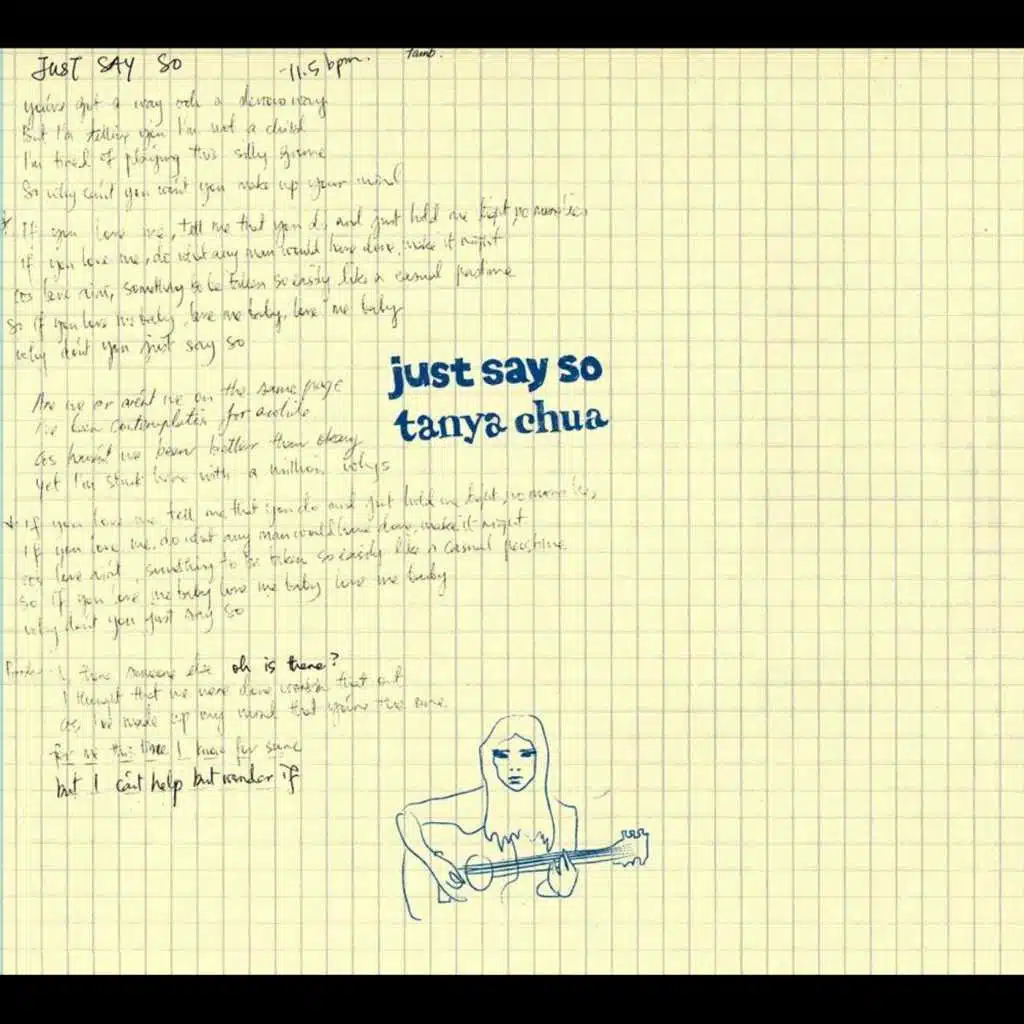 JUST SAY SO
-11.5 bpm.
Tamb.
you've got a way ooh a way
But I'm telling you I'm not a child
I'm tired of playing this silly game
So why can't you won't you make up your mind
If you love me, tell me that you do and just hold me tight, no more lies
if you love me, do what any man would have done, make it right
cos love ain't, something to be taken so easily like a casual pastime
So if you love me baby, love me baby, love me baby
why don't you just say so
just say so
tanya chua
Are we or aren't we on the same page
I've been contemplatin for awhile
cos haven't we been better than okay
yet I'm stuck here with a million whys
* if you love me tell me that you do and just hold me tight, no more lies,
if you love me, do what any man would have done, make it right
cos love ain't, something to be taken so easily like a casual pastime
so if you love me baby love me baby love me baby
why don't you just say so
there someone else oh is there?
I thought that we were done that out
cos I've made up my mind that you're the one
for me this time I know for sure
but I can't help but wonder if